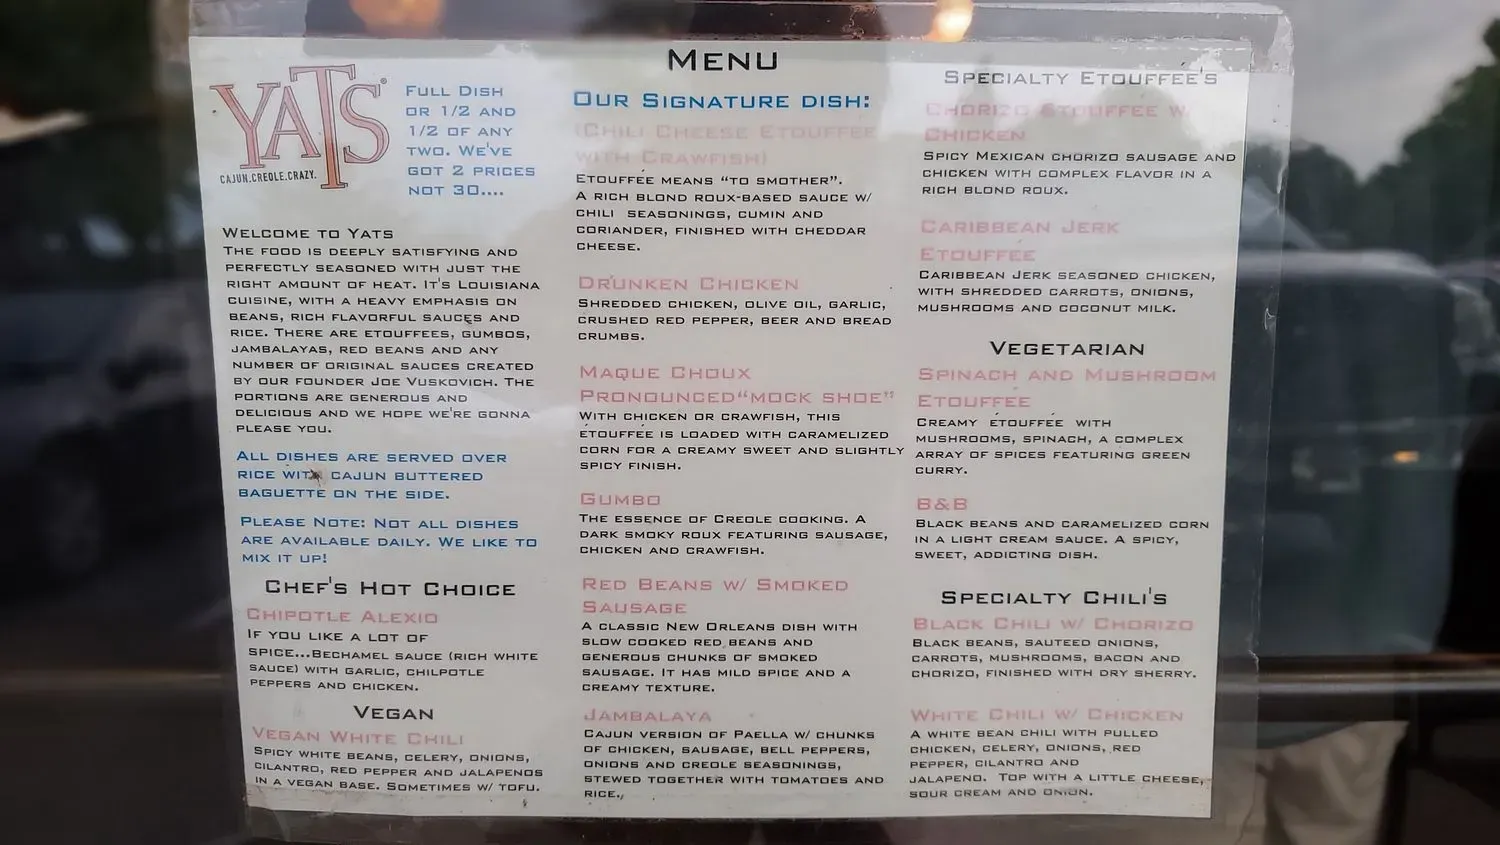 YATS®
CAJUN.CREOLE.CRAZY.
FULL DISH
OR 1/2 AND
1/2 OF ANY
TWO. WE'VE
GOT 2 PRICES
NOT 30....
WELCOME TO YATS
THE FOOD IS DEEPLY SATISFYING AND
PERFECTLY SEASONED WITH JUST THE
RIGHT AMOUNT OF HEAT. IT'S LOUISIANA
CUISINE, WITH A HEAVY EMPHASIS ON
BEANS, RICH FLAVORFUL SAUCES AND
RICE. THERE ARE ETOUFFEES, GUMBOS,
JAMBALAYAS, RED BEANS AND ANY
NUMBER OF ORIGINAL SAUCES CREATED
BY OUR FOUNDER JOE VUSKOVICH. THE
PORTIONS ARE GENEROUS AND
DELICIOUS AND WE HOPE WE'RE GONNA
PLEASE YOU.
ALL DISHES ARE SERVED OVER
RICE WITH CAJUN BUTTERED
BAGUETTE ON THE SIDE.
PLEASE NOTE: NOT ALL DISHES
ARE AVAILABLE DAILY. WE LIKE TO
MIX IT UP!
CHEF'S HOT CHOICE
CHIPOTLE ALEXIO
IF YOU LIKE A LOT OF
SPICE...BECHAMEL SAUCE (RICH WHITE
SAUCE) WITH GARLIC, CHILPOTLE
PEPPERS AND CHICKEN.
VEGAN
VEGAN WHITE CHILI
SPICY WHITE BEANS, CELERY, ONIONS,
CILANTRO, RED PEPPER AND JALAPENOS
IN A VEGAN BASE. SOMETIMES W/ TOFU.
MENU
OUR SIGNATURE DISH:
(CHILI CHEESE ETOUFFEE
WITH CRAWFISH)
ETOUFFÉE MEANS "TO SMOTHER".
A RICH BLOND ROUX-BASED SAUCE W/
CHILI SEASONINGS, CUMIN AND
CORIANDER, FINISHED WITH CHEDDAR
CHEESE.
DRUNKEN CHICKEN
SHREDDED CHICKEN, OLIVE OIL, GARLIC,
CRUSHED RED PEPPER, BEER AND BREAD
CRUMBS.
MAQUE CHOUX
PRONOUNCED"MOCK SHOE"
WITH CHICKEN OR CRAWFISH, THIS
ÉTOUFFÉE IS LOADED WITH CARAMELIZED
CORN FOR A CREAMY SWEET AND SLIGHTLY
SPICY FINISH.
GUMBO
THE ESSENCE OF CREOLE COOKING. A
DARK SMOKY ROUX FEATURING SAUSAGE,
CHICKEN AND CRAWFISH.
RED BEANS W/ SMOKED
SAUSAGE
A CLASSIC NEW ORLEANS DISH WITH
SLOW COOKED RED BEANS AND
GENEROUS CHUNKS OF SMOKED
SAUSAGE. IT HAS MILD SPICE AND A
CREAMY TEXTURE.
JAMBALAYA
CAJUN VERSION OF PAELLA W/ CHUNKS
OF CHICKEN, SAUSAGE, BELL PEPPERS,
ONIONS AND CREOLE SEASONINGS,
STEWED TOGETHER WITH TOMATOES AND
RICE.
SPECIALTY ETOUFFEE'S
CHORIZO ETOUFFEE W/
CHICKEN
SPICY MEXICAN CHORIZO SAUSAGE AND
CHICKEN WITH COMPLEX FLAVOR IN A
RICH BLOND ROUX.
CARIBBEAN JERK
ETOUFFEE
CARIBBEAN JERK SEASONED CHICKEN,
WITH SHREDDED CARROTS, ONIONS,
MUSHROOMS AND COCONUT MILK.
VEGETARIAN
SPINACH AND MUSHROOM
ETOUFFÉE
CREAMY ÉTOUFFÉE WITH
MUSHROOMS, SPINACH, A COMPLEX
ARRAY OF SPICES FEATURING GREEN
CURRY.
B&B
BLACK BEANS AND CARAMELIZED CORN
IN A LIGHT CREAM SAUCE. A SPICY,
SWEET, ADDICTING DISH.
SPECIALTY CHILI'S
BLACK CHILI W/ CHORIZO
BLACK BEANS, SAUTEED ONIONS,
CARROTS, MUSHROOMS, BACON AND
CHORIZO, FINISHED WITH DRY SHERRY.
WHITE CHILI W/ CHICKEN
A WHITE BEAN CHILI WITH PULLED
CHICKEN, CELERY, ONIONS, RED
PEPPER, CILANTRO AND
JALAPENO. TOP WITH A LITTLE CHEESE,
SOUR CREAM AND ONION.